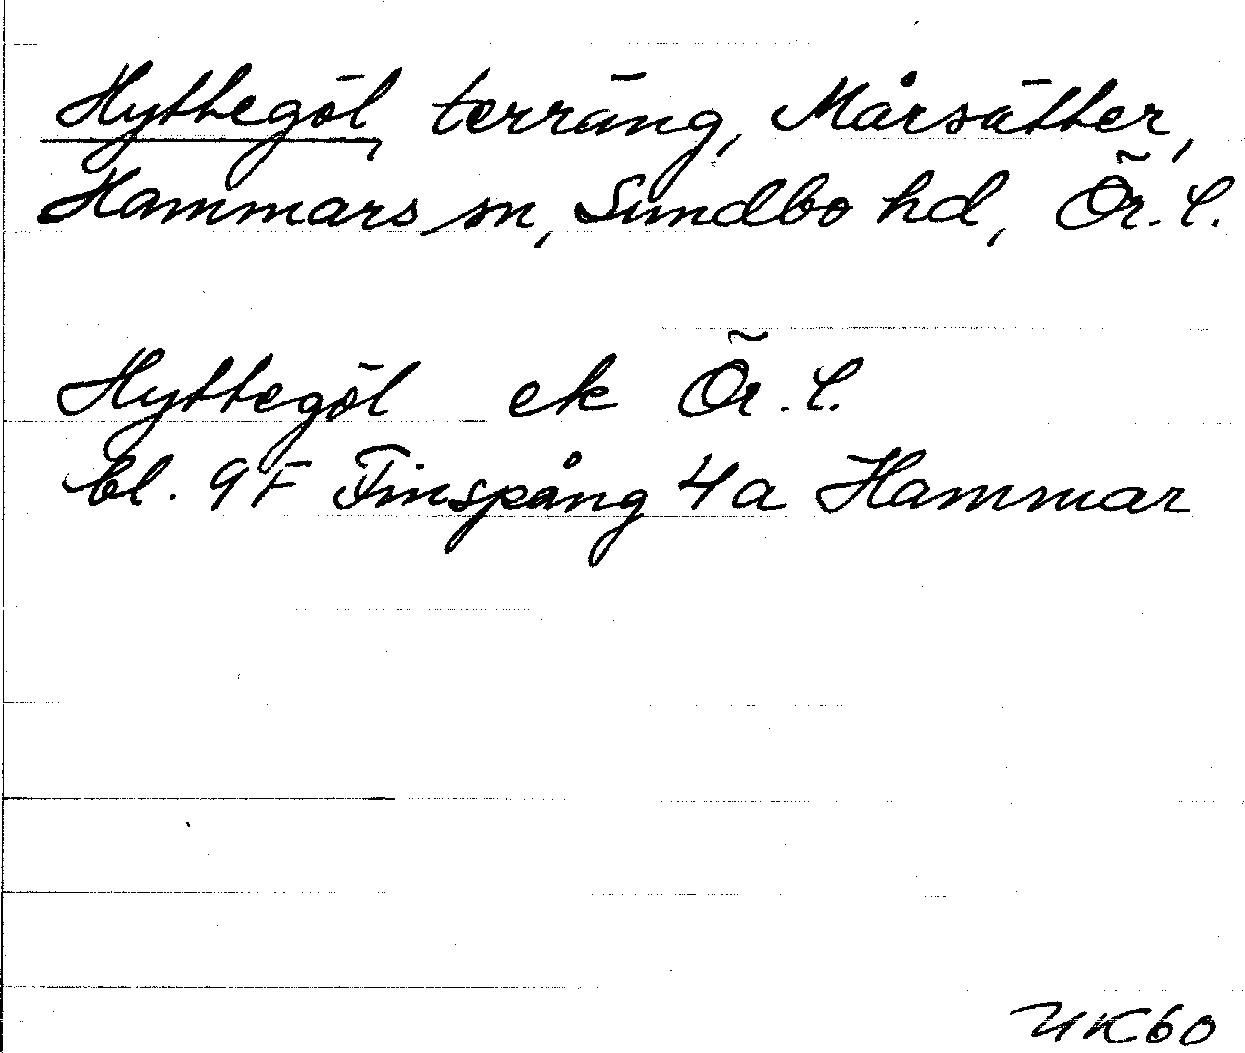 Hyttegöl, terräng, Mårsätter,
Hammars sn, Sundbo hd, Ör. l.
Hyttegöl ek Ör. l.
bl. 9F Finspång 4a Hammar
UK60